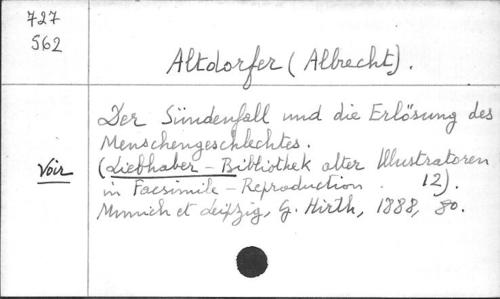 727
562
Altdorfer (Albrecht).
Der Sündenfall und die Erlösung des
Menschengeschlechtes.
Voir
(Liebhaber - Bibliothek alter Illustratoren
in Facsimile - Reproduction. 12).
Munich et Leipzig, G. Hirth, 1888, 8o.